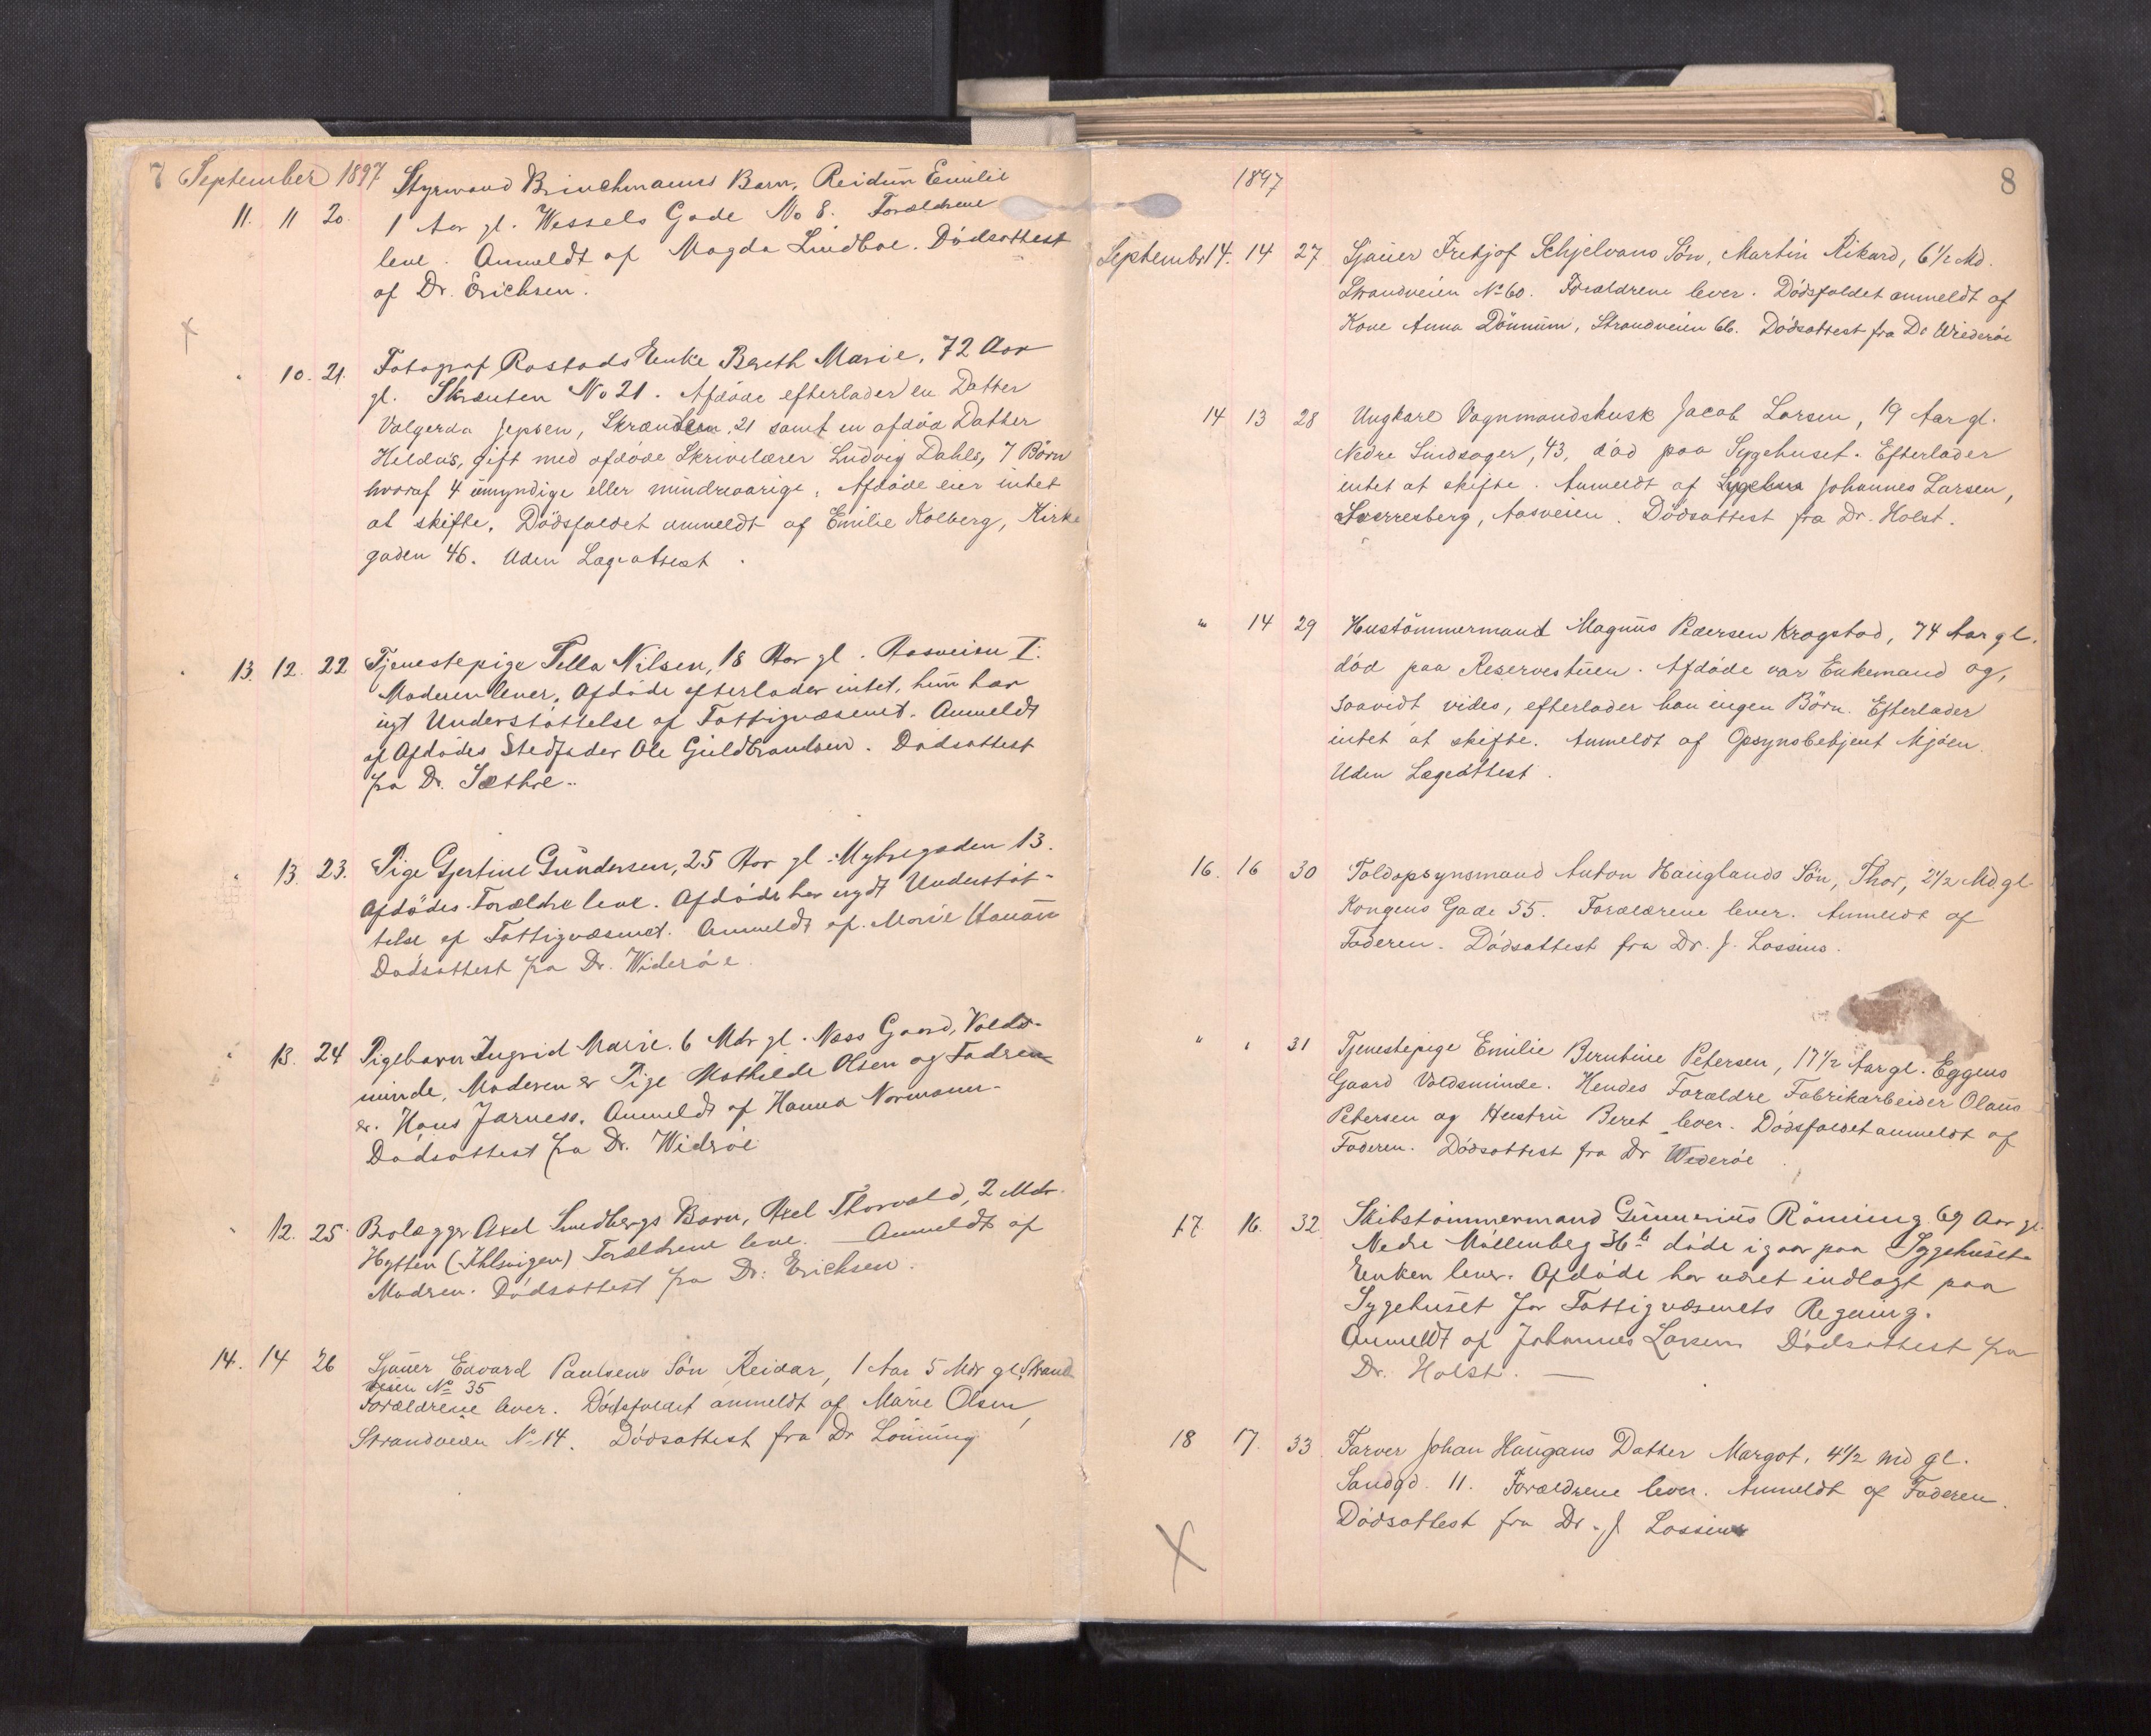 7 September 1897
Styrmand Brinchmanns Barn, Reidun Emilie
11. 11 20. 1 Aar gl. Wessels Gade No 8. Forældrene
leve. Anmeldt af Magda Lindboe. Dödsattest
af Dr. Erichsen.
" 10. 21. Fotograf Rostads Enke Bereth Marie, 72 Aar
gl. Skrænten No 21. Afdöde efterlader en Datter
Valgerda Jepsen, Skrænten, 21 samt en afdöd Datter
Hilda's, gift med afdöde Skrivelærer Ludvig Dahls, 7 Börn
hvoraf 4 umyndige eller mindreaarige. Afdöde eier intet
at skifte. Dödsfaldet anmeldt af Emilie Kolberg, Kirke
gaden 46. Uden Lægeattest.
" 13. 12. 22 Tjenestepige Pella Nilsen, 18 Aar gl. Aasveien I.
Moderen lever. Afdöde efterlader intet, hun har
nyt Understöttelse af Fattigvæsenet. Anmeldt
af Afdödes Stedfader Ole Guldbrandsen. Dödsattest
fra Dr. Sæthre.
" 13. 23. Pige Gjertine Gundersen, 25 Aar gl. Mybregaden 13.
Afdödes Forældre leve. Afdöde har nydt Understöt-
telse af Fattigvæsenet. Anmeldt af Marie
Dödsattest fra Dr. Wideröe.
" 13. 24 Pigebarn Ingrid Marie. 6 Mdr gl. Næss Gaard, Volds-
minde, Moderen er Pige Mathilde Olsen og Fadren
er Hans Jarness. Anmeldt af Hanna Normann.
Dödsattest fra Dr. Widröe
" 12. 25. Brolægger Axel Smedbergs Barn, Axel Thorvald, 2 Mdr.
Hytten (Ihlsvigen) Forældrene leve. — Anmeldt af
Modren. Dödsattest fra Dr. Erichsen.
14. 14 26 Sjauer Edvard Paulsens Sön Reidar, 1 Aar 5 Mdr gl. Strand
veien No 35
Forældrene lever. Dödsfaldet anmeldt af Marie Olsen,
Strandveien No 14. Dödsattest fra Dr Lönning
1897 8
Septembr 14. 14 27 Sjauer Fritjof Schjelvans Sön, Martin Rikard, 6 1/2 Md.
Strandveien No 60. Forældrene lever. Dödsfaldet anmeldt af
Kone Anna Dönnum, Strandveien 66. Dödsattest fra Dr Wideröe
14 13 28 Ungkarl Vognmandskusk Jacob Larsen, 19 Aar gl.
Nedre Smedsager, 43, död paa Sygehuset. Efterlader
intet at skifte. Anmeldt af Johannes Larsen,
Sverresberg, Aasveien. Dödsattest fra Dr. Holst.
" 14 29 Hustömmermand Magnus Pedersen Krogstad, 74 Aar gl.
död paa Reservestuen. Afdöde var Enkemand og,
saavidt vides, efterlader han ingen Börn. Efterlader
intet at skifte. Anmeldt af Opsynsbetjent Mjöen.
Uden Lægeattest.
16. 16 30 Toldopsynsmand Anton Hauglands Sön, Thor, 2 1/2 Md. gl.
Kongens Gade 55. Forældrene lever. Anmeldt af
Faderen. Dödsattest fra Dr. J. Lossius.
" " 31 Tjenestepige Emilie Berntine Petersen, 17 1/2 Aar gl. Eggens
Gaard Voldsminde. Hendes Forældre Fabrikarbeider Olaus
Petersen og Hustru Beret lever. Dödsfaldet anmeldt af
Faderen. Dödsattest fra Dr Wederöe.
17 16. 32 Skibstömmermand Gunnerius Rönning 69 Aar gl.
Nedre Möllenberg 36 b döde igaar paa Sygehuset.
Enken lever. Afdöde har været indlagt paa
Sygehuset for Fattigvæsenets Regning.
Anmeldt af Johannes Larsen. Dödsattest fra
Dr. Holst. —
18 17. 33 Farver Johan Haugans Datter Margot, 4 1/2 Md gl.
Sandgd. 11. Forældrene lever. Anmeldt af Faderen.
Dödsattest fra Dr. J Lossius